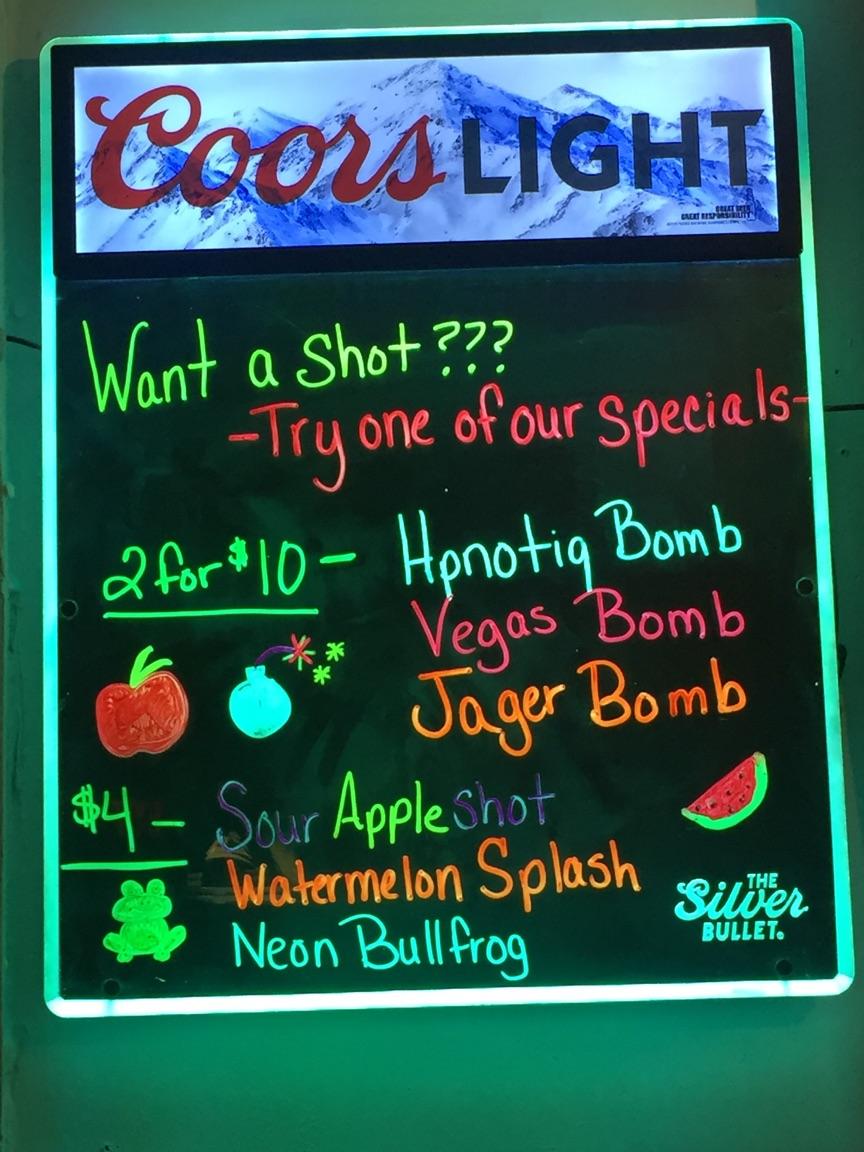 Coors LIGHT
GREAT BEER
GREAT RESPONSIBILITY
Want a Shot???
-Try one of our Specials-
2 for $10 - Hpnotiq Bomb
Vegas Bomb
Jager Bomb
$4 - Sour Apple shot
Watermelon Splash
Neon Bullfrog
THE
Silver
BULLET.